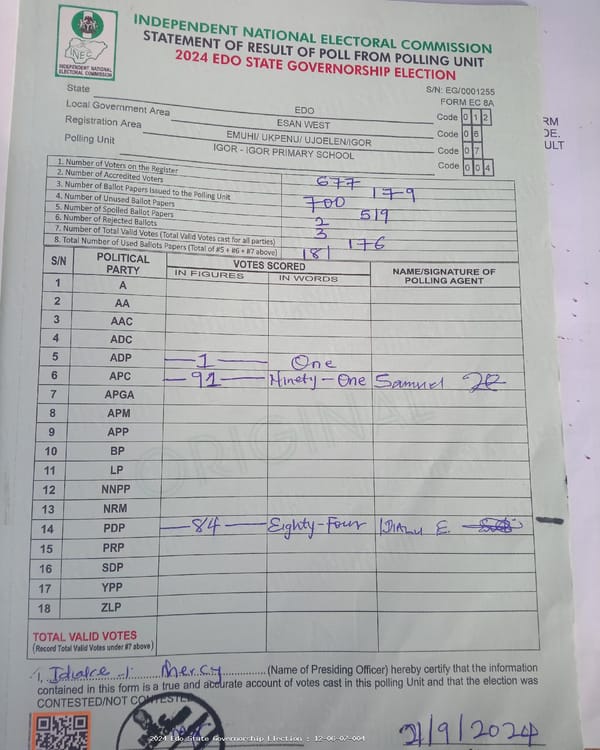 INDEPENDENT NATIONAL ELECTORAL COMMISSION
STATEMENT OF RESULT OF POLL FROM POLLING UNIT
2024 EDO STATE GOVERNORSHIP ELECTION
INEC
INDEPENDENT NATIONAL
ELECTORAL COMMISSION
S/N: EG/0001255
FORM EC 8A
State EDO Code 0 1 2
Local Government Area ESAN WEST Code 0 6
Registration Area EMUHI/ UKPENU/ UJOELEN/IGOR Code 0 7
Polling Unit IGOR - IGOR PRIMARY SCHOOL Code 0 0 4
RM
DE.
ULT
1. Number of Voters on the Register 677
2. Number of Accredited Voters 179
3. Number of Ballot Papers Issued to the Polling Unit 700
4. Number of Unused Ballot Papers 519
5. Number of Spoiled Ballot Papers 2
6. Number of Rejected Ballots 3
7. Number of Total Valid Votes (Total Valid Votes cast for all parties) 176
8. Total Number of Used Ballots Papers (Total of #5 + #6 + #7 above) 181
S/N POLITICAL PARTY VOTES SCORED NAME/SIGNATURE OF POLLING AGENT
IN FIGURES IN WORDS
1 A
2 AA
3 AAC
4 ADC
5 ADP 1 One
6 APC 91 Ninety-One Samuel
7 APGA
8 APM
9 APP
10 BP
11 LP
12 NNPP
13 NRM
14 PDP 84 Eighty-Four E.
15 PRP
16 SDP
17 YPP
18 ZLP
ORIGINAL
TOTAL VALID VOTES
(Record Total Valid Votes under #7 above)
I, Mercy (Name of Presiding Officer) hereby certify that the information
contained in this form is a true and accurate account of votes cast in this polling Unit and that the election was
CONTESTED/NOT CONTESTED
2024 Edo State Governorship Election : 12-06-07-004
21/9/2024